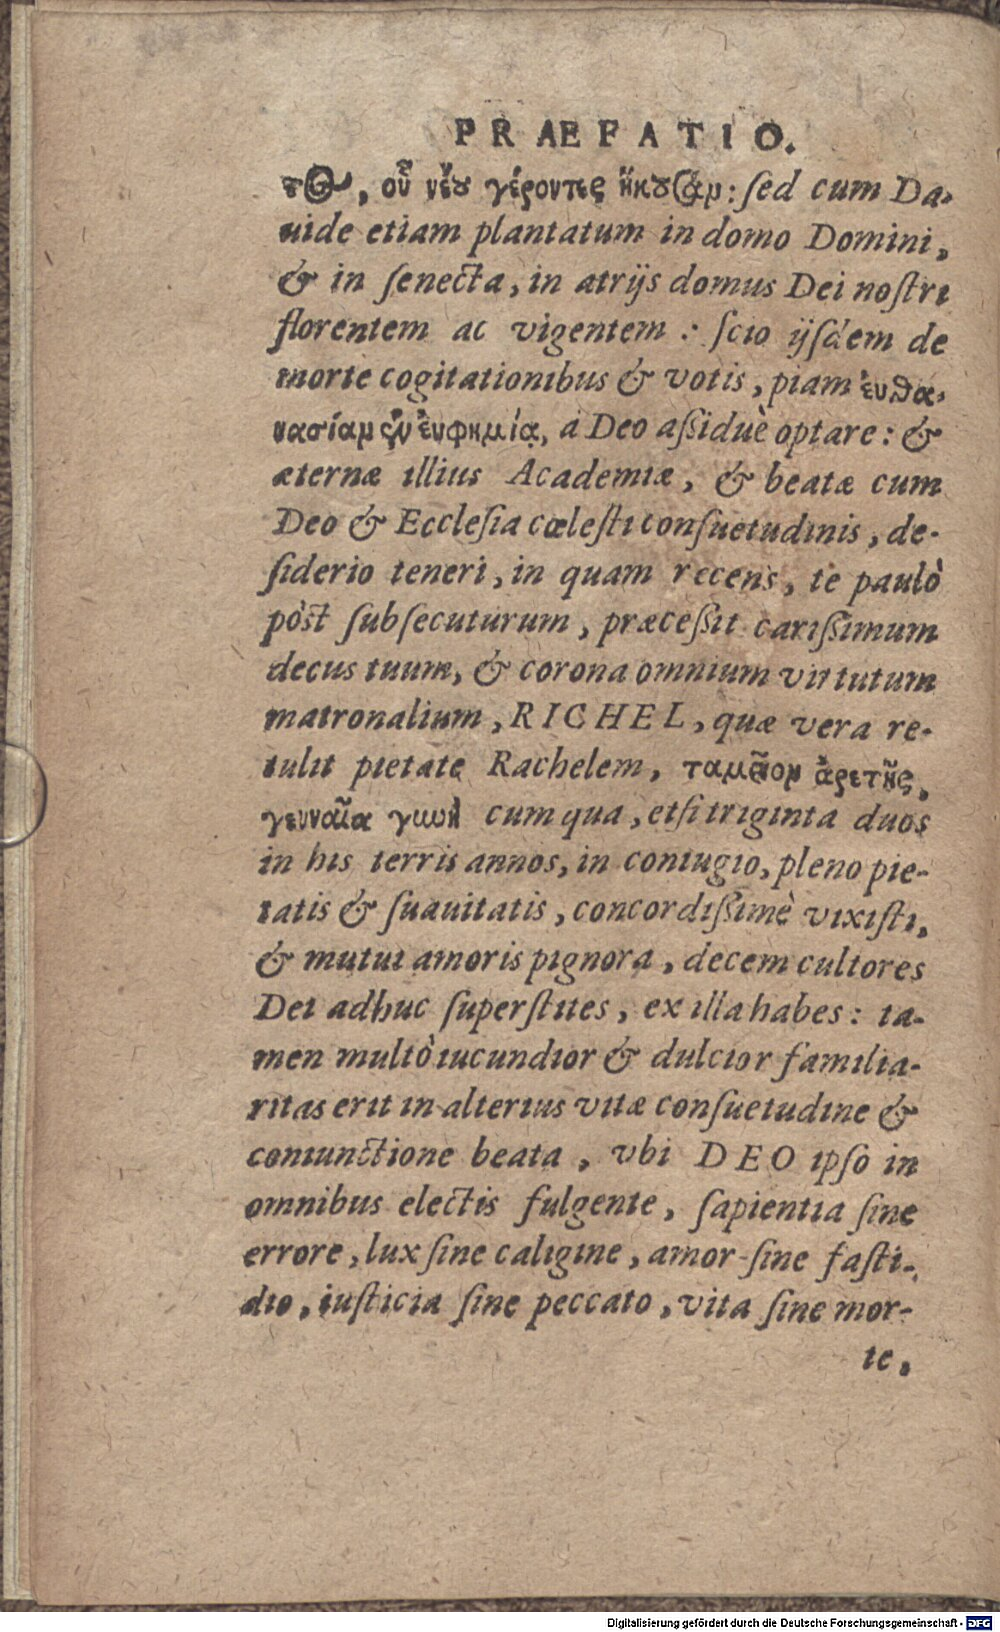 PRAEFATIO.
τος, οὗ νέου γέροντες ἤκουσαν: sed cum Da-
uide etiam plantatum in domo Domini,
& in senecta, in atrijs domus Dei nostri
florentem ac vigentem: scio ijsdem de
morte cogitationibus & votis, piam ἐυθα-
νασίαμ ἐν ἐυφημίᾳ, à Deo aßiduè optare: &
æternæ illius Academiæ, & beatæ cum
Deo & Ecclesia cœlesti consuetudinis, de-
siderio teneri, in quam recens, te paulò
pòst subsecuturum, præceßit carißimum
decus tuum, & corona omnium virtutum
matronalium, RICHEL, quæ vera re-
tulit pietate Rachelem, ταμεῖον ἀρετῆς,
γενναῖα γυνὴ cum qua, etsi triginta duos
in his terris annos, in coniugio, pleno pie-
tatis & suauitatis, concordißimè vixisti,
& mutui amoris pignora, decem cultores
Dei adhuc superstites, ex illa habes: ta-
men multò iucundior & dulcior familia-
ritas erit in alterius vitæ consuetudine &
coniunctione beata, vbi DEO ipso in
omnibus electis fulgente, sapientia sine
errore, lux sine caligine, amor sine fasti-
dio, iusticia sine peccato, vita sine mor-
te,
Digitalisierung gefördert durch die Deutsche Forschungsgemeinschaft - DFG